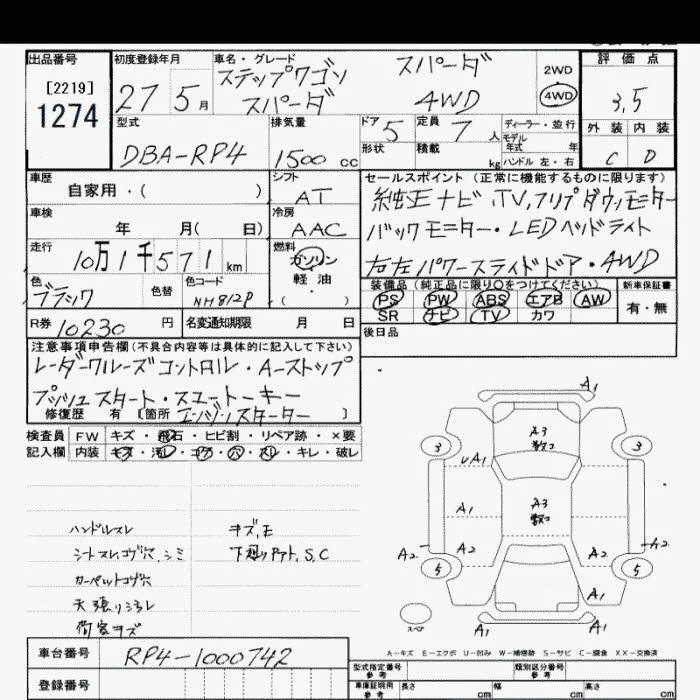 出品番号
[2219]
1274
初度登録年月
27 5 月
車名・グレード
ステップワゴン スパーダ
スパーダ 4WD
2WD
4WD
評価点
3.5
外装 内装
C D
型式
DBA-RP4
排気量
1500 cc
ドア 5
定員 7 人
ディーラー・並行
モデル
年式 年
形状
積載 kg
ハンドル 左・右
車歴
自家用・( )
シフト
AT
セールスポイント (正常に機能するものに限ります)
純正ナビ.TV.フリップダウンモニター
バックモニター・LEDヘッドライト
右左パワースライドドア・4WD
車検
年 月( 日)
冷房
AAC
走行
10万1千571 km
燃料
ガソリン
軽油
( ・ )
色
ブラック
色替
色コード
NH812P
装備品 (純正品に限り○をつけてください)
PS PW ABS エアB AW
SR ナビ TV カワ
新車保証書
有・無
R券 10230 円
名変通知期限 月 日
後日品
注意事項申告欄(不具合内容等は具体的に記入して下さい)
レーダークルーズコントロル・A-ストップ
プッシュスタート・スマートキー
修復歴 有 [箇所 エンジンスターター ]
検査員 FW キズ・飛石・ヒビ割・リペア跡・×要
記入欄 内装 キズ・汚レ・コゲ・穴・スレ・キレ・破レ
ハンドルスレ キズ,E
シートスレ,コゲ穴,シミ S,C
カーペットコゲ穴
天張りシミ
荷室キズ
A1
A3
3 3
A1
A3
A1
A2 A2 A2 A2
5 5
A1
スペア
A1 A1
A-キズ E-エクボ U-凹み W-補修跡 S-サビ C-腐食 XX-交換済
車台番号 RP4-1000742
登録番号
型式指定番号
参考
類別区分番号
参考
車庫証明用
参考
長さ cm 幅 cm 高さ cm